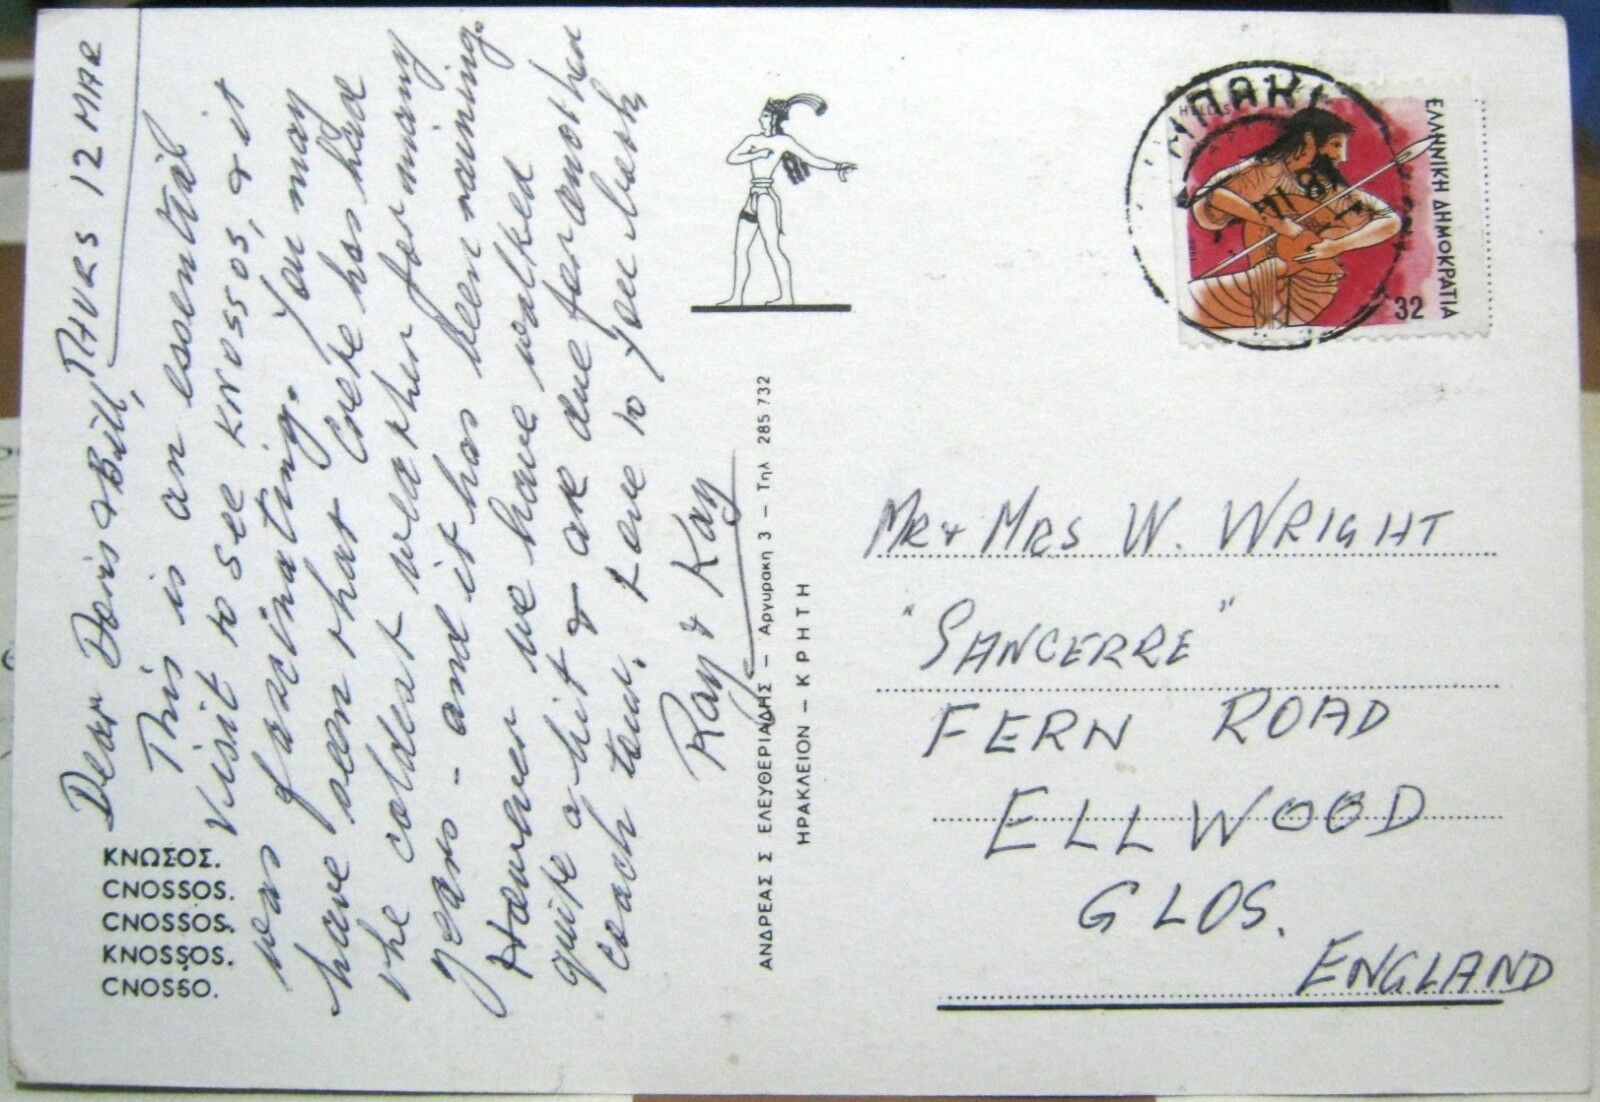 THURS 12 MAR
Dear Doris & Bill,
This is an essential
visit to see KNOSSOS, & it
was fascinating. You may
have seen that Crete has had
the coldest weather for many
years - and it has been raining.
However we have walked
quite a bit & are due for another
coach tour. Love to you both
Ray & Kay
ΚΝΩΣΟΣ.
CNOSSOS.
CNOSSOS.
KNOSSOS.
CNOSSO.
ΑΝΔΡΕΑΣ Σ ΕΛΕΥΘΕΡΙΑΔΗΣ – Αργυρακη 3 – Τηλ 285 732
ΗΡΑΚΛΕΙΟΝ – ΚΡΗΤΗ
ΕΛΛΗΝΙΚΗ ΔΗΜΟΚΡΑΤΙΑ
HELLAS
1986
32
MR & MRS W. WRIGHT
"SANCERRE"
FERN ROAD
ELLWOOD
GLOS.
ENGLAND